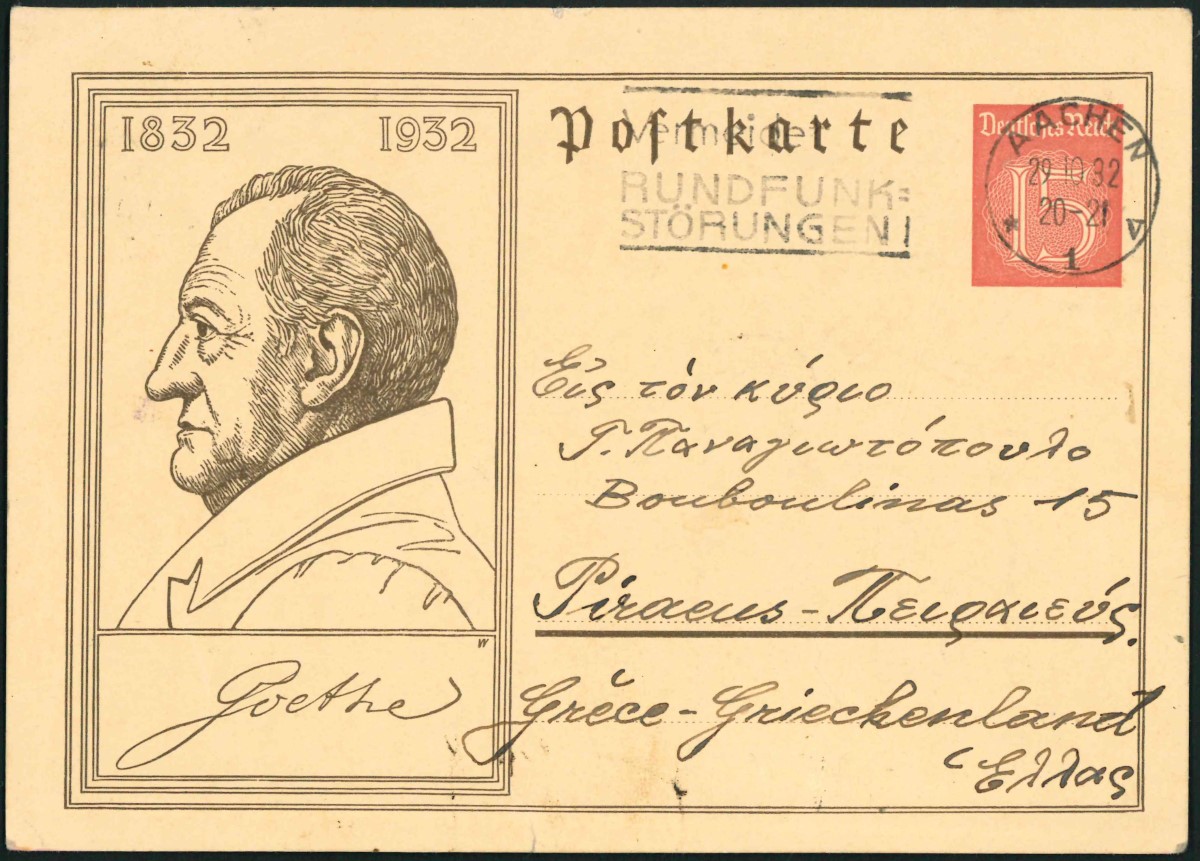 1832 1932
Goethe
W
Postkarte
Vermeidet
RUNDFUNK=
STÖRUNGEN!
Deutsches Reich
15
AACHEN
29.10.32
20-21
* 1 ▽
Εἰς τόν κύριο
Γ. Παναγιωτόπουλο
Bouboulinas 15
Piraeus - Πειραιεύς.
Grèce - Griechenland
Ἑλλας